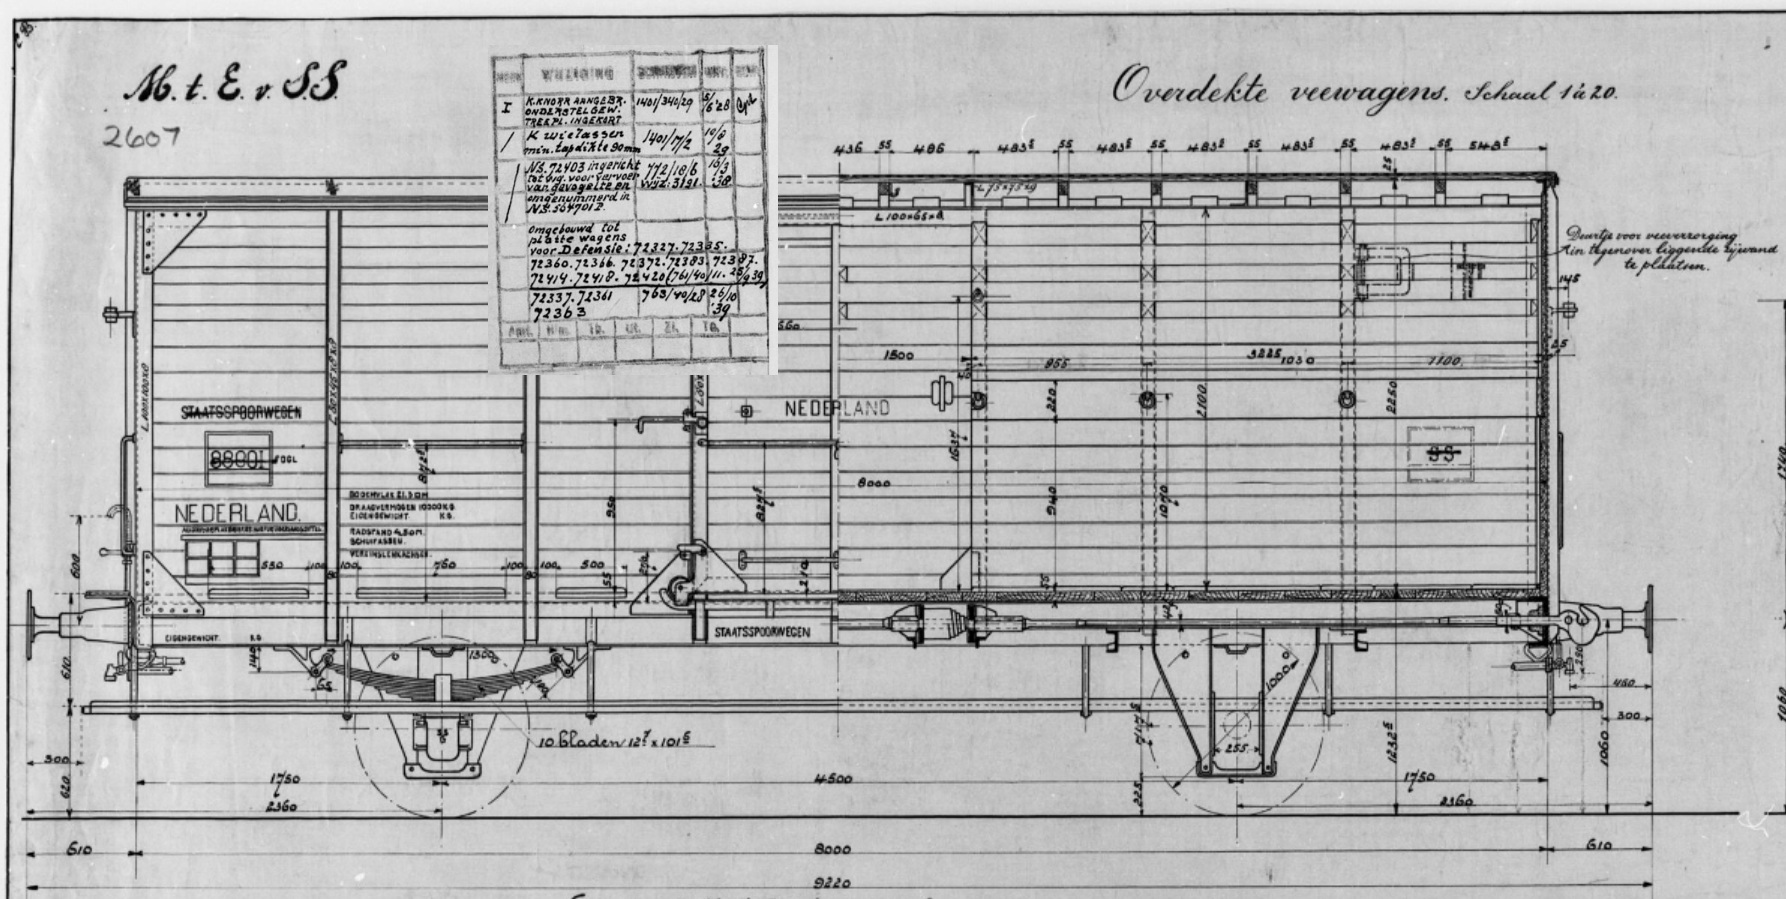 M. t. E. v. S.S.
2607
Overdekte veewagens. Schaal 1 à 20.
WIJZIGING
I K.KNORR AANGEBR. 1401/340/29 5/6 '28
ONDERSTEL GEW.
TREKPL. INGEKORT
K wielassen 1401/17/2 10/8 29
min. tapdikte 90mm
NS. 72403 ingericht 772/18/6 15/3 '38
tot wag. voor vervoer wijz: 3191
van gevogelte en
omgenummerd in
NS. 504701 P.
Omgebouwd tot
platte wagens
voor Defensie: 72327. 72335.
72360. 72366. 72372. 72383. 72387.
72414. 72418. 72420 (761/40/11. 25/9 39)
72337. 72361 763/40/28 26/10 '39
72363
436 55 486 483⁵ 55 483⁵ 55 483⁵ 55 483⁵ 55 483⁵ 55 548⁵
25
L 75×75×9
L 100×65×9
Deurtje voor veeverzorging
in tegenover liggende zijwand
te plaatsen.
145
25
560
1500
955
3225
1030
1100
STAATSSPOORWEGEN
88001
NEDERLAND
2100
220
2250
1637
SS
NEDERLAND.
BODEMVLAK 21.5 QM
DRAAGVERMOGEN 10000 KG
EIGENGEWICHT KG.
RADSTAND 4.50M.
SCHUIFASSEN.
VEREINSLENKACHSEN.
8000
950
827⁵
940
1070
1740
600
550 100 100 750 100 100 500
55
210
55
EIGENGEWICHT. KG
STAATSSPOORWEGEN
610
140
65
1300
1000
250
460
300
1060
717⁵
1232⁵
1060
10 bladen 12⁷ × 101⁶
255
300
620
1750
4500
1750
225
2360
2360
610
8000
610
9220